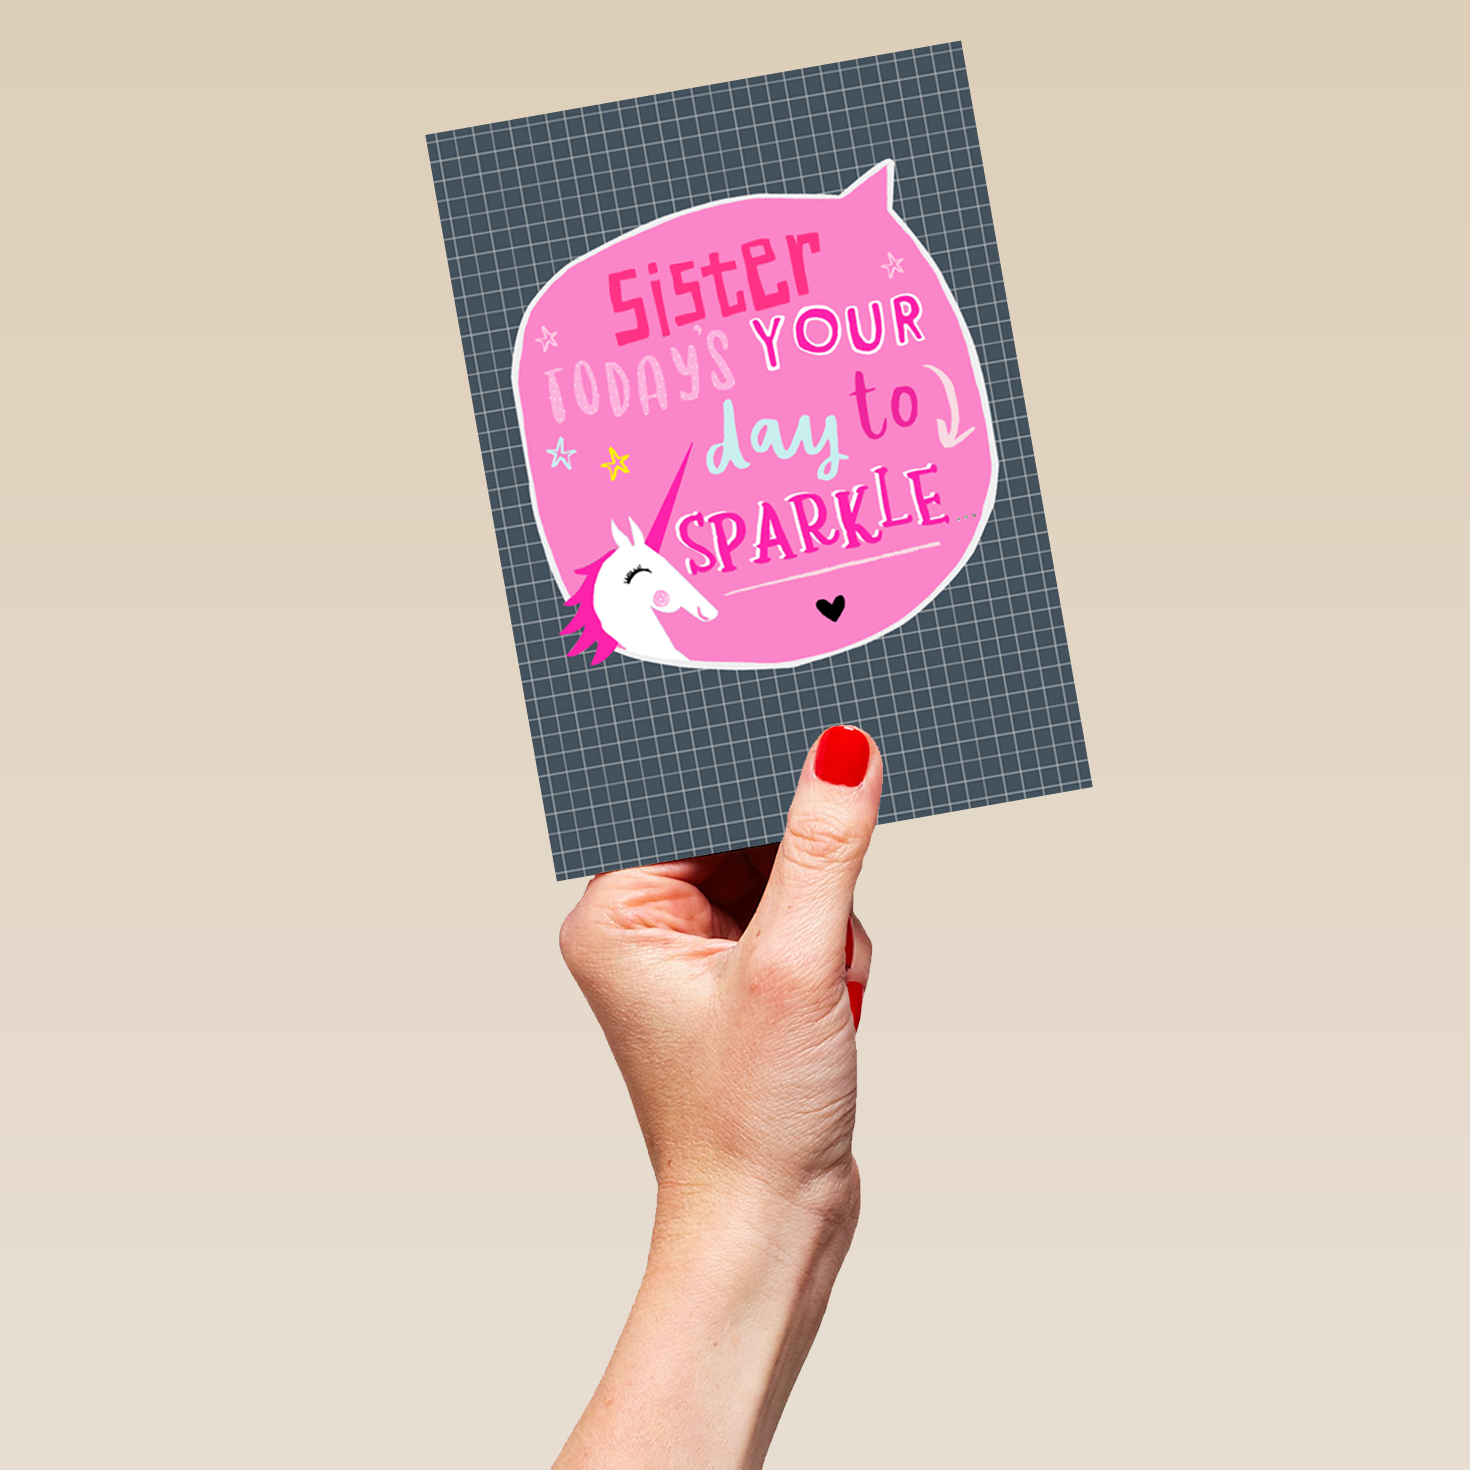 Sister
TODAY'S YOUR
day to
SPARKLE...